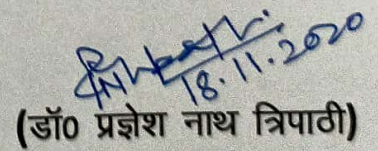 18.11.2020
(डॉ0 प्रज्ञेश नाथ त्रिपाठी)